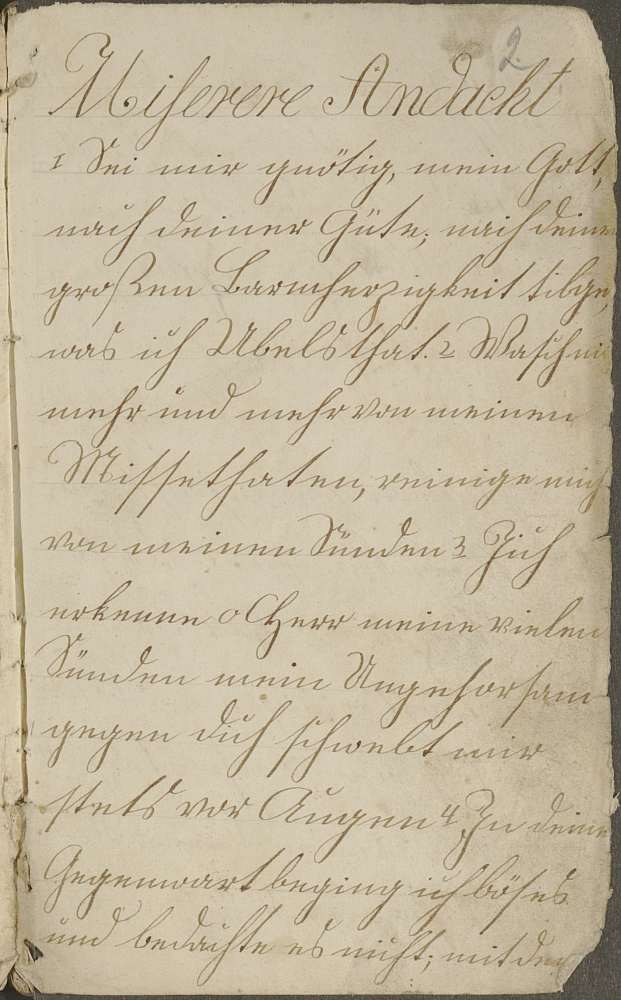 2.
Miserere Andacht
1 Sei mir gnötig, mein Gott,
nach deiner Güte; nach deiner
großen Barmherzigkeit tilge,
was ich Ubels that. 2 Wasch mi
mehr und mehr von meinen
Missethaten, reinige mich
von meinen Sünden 3 Ich
erkenne o Herr meine vielen
Sünden mein Ungehorsam
gegen dich schwebt mir
stets vor Augen 4 In deine
Gegenwart beging ich böses
und bedachte es nicht; mit de